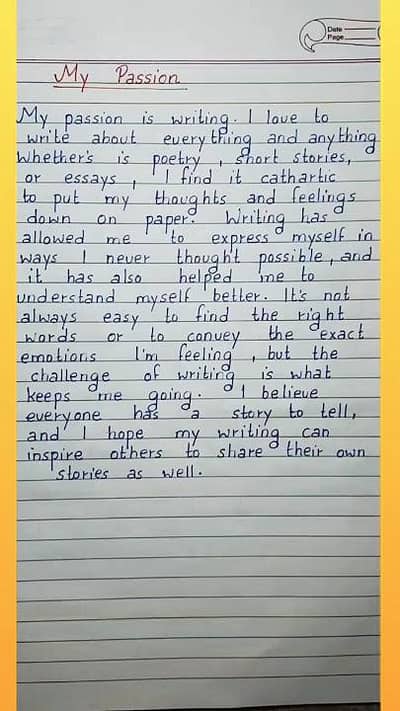 Date
Page
My Passion
My passion is writing. I love to
write about everything and anything
Whether's is poetry, short stories,
or essays, I find it cathartic
to put my thoughts and feelings
down on paper. Writing has
allowed me to express myself in
ways I never thought possible, and
it has also helped me to
understand myself better. It's not
always easy to find the right
words or to convey the exact
emotions I'm feeling, but the
challenge of writing is what
keeps me going. I believe
everyone has a story to tell,
and I hope my writing can
inspire others to share their own
stories as well.